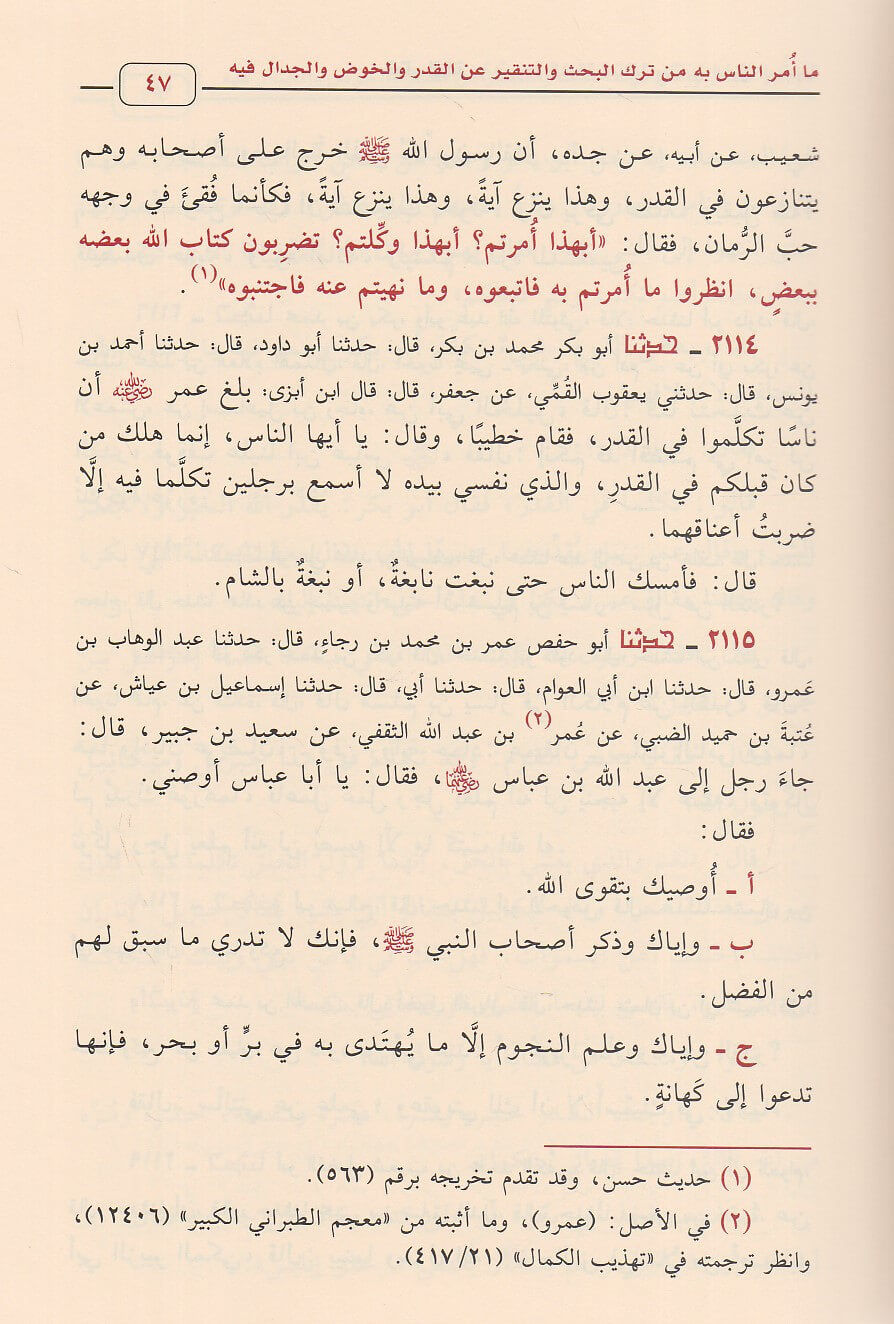 ما أُمر الناس به من ترك البحث والتنقير عن القدر والخوض والجدال فيه
٤٧
شعيب، عن أبيه، عن جده، أن رسول الله ﷺ خرج على أصحابه وهم
يتنازعون في القدر، وهذا ينزع آيةً، وهذا ينزع آيةً، فكأنما فُقئَ في وجهه
حبَّ الرُّمان، فقال: «أبهذا أُمرتم؟ أبهذا وكِّلتم؟ تضرِبون كتاب الله بعضه
ببعضٍ، انظروا ما أُمرتم به فاتبعوه، وما نهيتم عنه فاجتنبوه»(١).
٢١١٤ ـ حدثنا أبو بكر محمد بن بكر، قال: حدثنا أبو داود، قال: حدثنا أحمد بن
يونس، قال: حدثني يعقوب القُمِّي، عن جعفر، قال: قال ابن أبزى: بلغ عمر رضي الله عنه أن
ناسًا تكلَّموا في القدر، فقام خطيبًا، وقال: يا أيها الناس، إنما هلك من
كان قبلكم في القدرِ، والذي نفسي بيده لا أسمع برجلين تكلَّما فيه إلَّا
ضربتُ أعناقهما.
قال: فأمسك الناس حتى نبغت نابغةٌ، أو نبغةٌ بالشام.
٢١١٥ ـ حدثنا أبو حفص عمر بن محمد بن رجاءٍ، قال: حدثنا عبد الوهاب بن
عَمرو، قال: حدثنا ابن أبي العوام، قال: حدثنا أبي، قال: حدثنا إسماعيل بن عياش، عن
عُتبةَ بن حميد الضبي، عن عُمر(٢) بن عبد الله الثقفي، عن سعيد بن جبير، قال:
جاءَ رجل إلى عبد الله بن عباس رضي الله عنهما، فقال: يا أبا عباس أوصني.
فقال:
أ ـ أُوصيك بتقوى الله.
ب ـ وإياك وذكر أصحاب النبي ﷺ، فإنك لا تدري ما سبق لهم
من الفضل.
ج ـ وإياك وعلم النجوم إلَّا ما يُهتَدى به في برٍّ أو بحر، فإنها
تدعوا إلى كَهانةٍ.
(١) حديث حسن، وقد تقدم تخريجه برقم (٥٦٣).
(٢) في الأصل: (عمرو)، وما أثبته من «معجم الطبراني الكبير» (١٢٤٠٦)،
وانظر ترجمته في «تهذيب الكمال» (٤١٧/٢١).